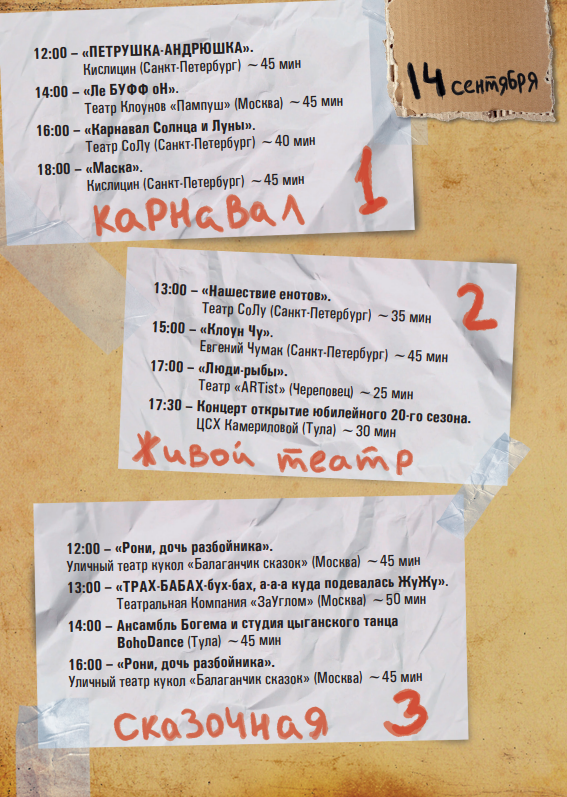 14 сентября
12:00 – «ПЕТРУШКА-АНДРЮШКА».
Кислицин (Санкт-Петербург) ~ 45 мин
14:00 – «Ле БУФФ оН».
Театр Клоунов «Пампуш» (Москва) ~ 45 мин
16:00 – «Карнавал Солнца и Луны».
Театр СоЛу (Санкт-Петербург) ~ 40 мин
18:00 – «Маска».
Кислицин (Санкт-Петербург) ~ 45 мин
Карнавал 1
13:00 – «Нашествие енотов».
Театр СоЛу (Санкт-Петербург) ~ 35 мин
15:00 – «Клоун Чу».
Евгений Чумак (Санкт-Петербург) ~ 45 мин
17:00 – «Люди-рыбы».
Театр «ARTist» (Череповец) ~ 25 мин
17:30 – Концерт открытие юбилейного 20-го сезона.
ЦСХ Камериловой (Тула) ~ 30 мин
Живой театр 2
12:00 – «Рони, дочь разбойника».
Уличный театр кукол «Балаганчик сказок» (Москва) ~ 45 мин
13:00 – «ТРАХ-БАБАХ-бух-бах, а-а-а куда подевалась ЖуЖу».
Театральная Компания «ЗаУглом» (Москва) ~ 50 мин
14:00 – Ансамбль Богема и студия цыганского танца
BohoDance (Тула) ~ 45 мин
16:00 – «Рони, дочь разбойника».
Уличный театр кукол «Балаганчик сказок» (Москва) ~ 45 мин
Сказочная 3